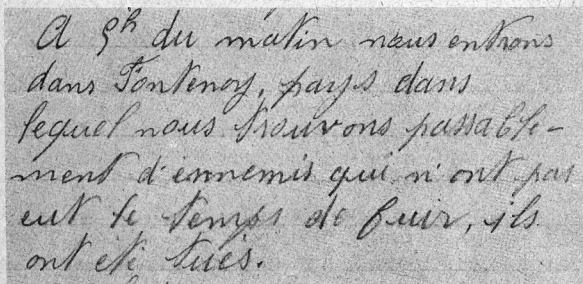 A 9h du matin nous entrons
dans Fontenoy, pays dans
lequel nous trouvons passable-
ment d'ennemis qui n'ont pas
eut le temps de fuir, ils
ont été tués.